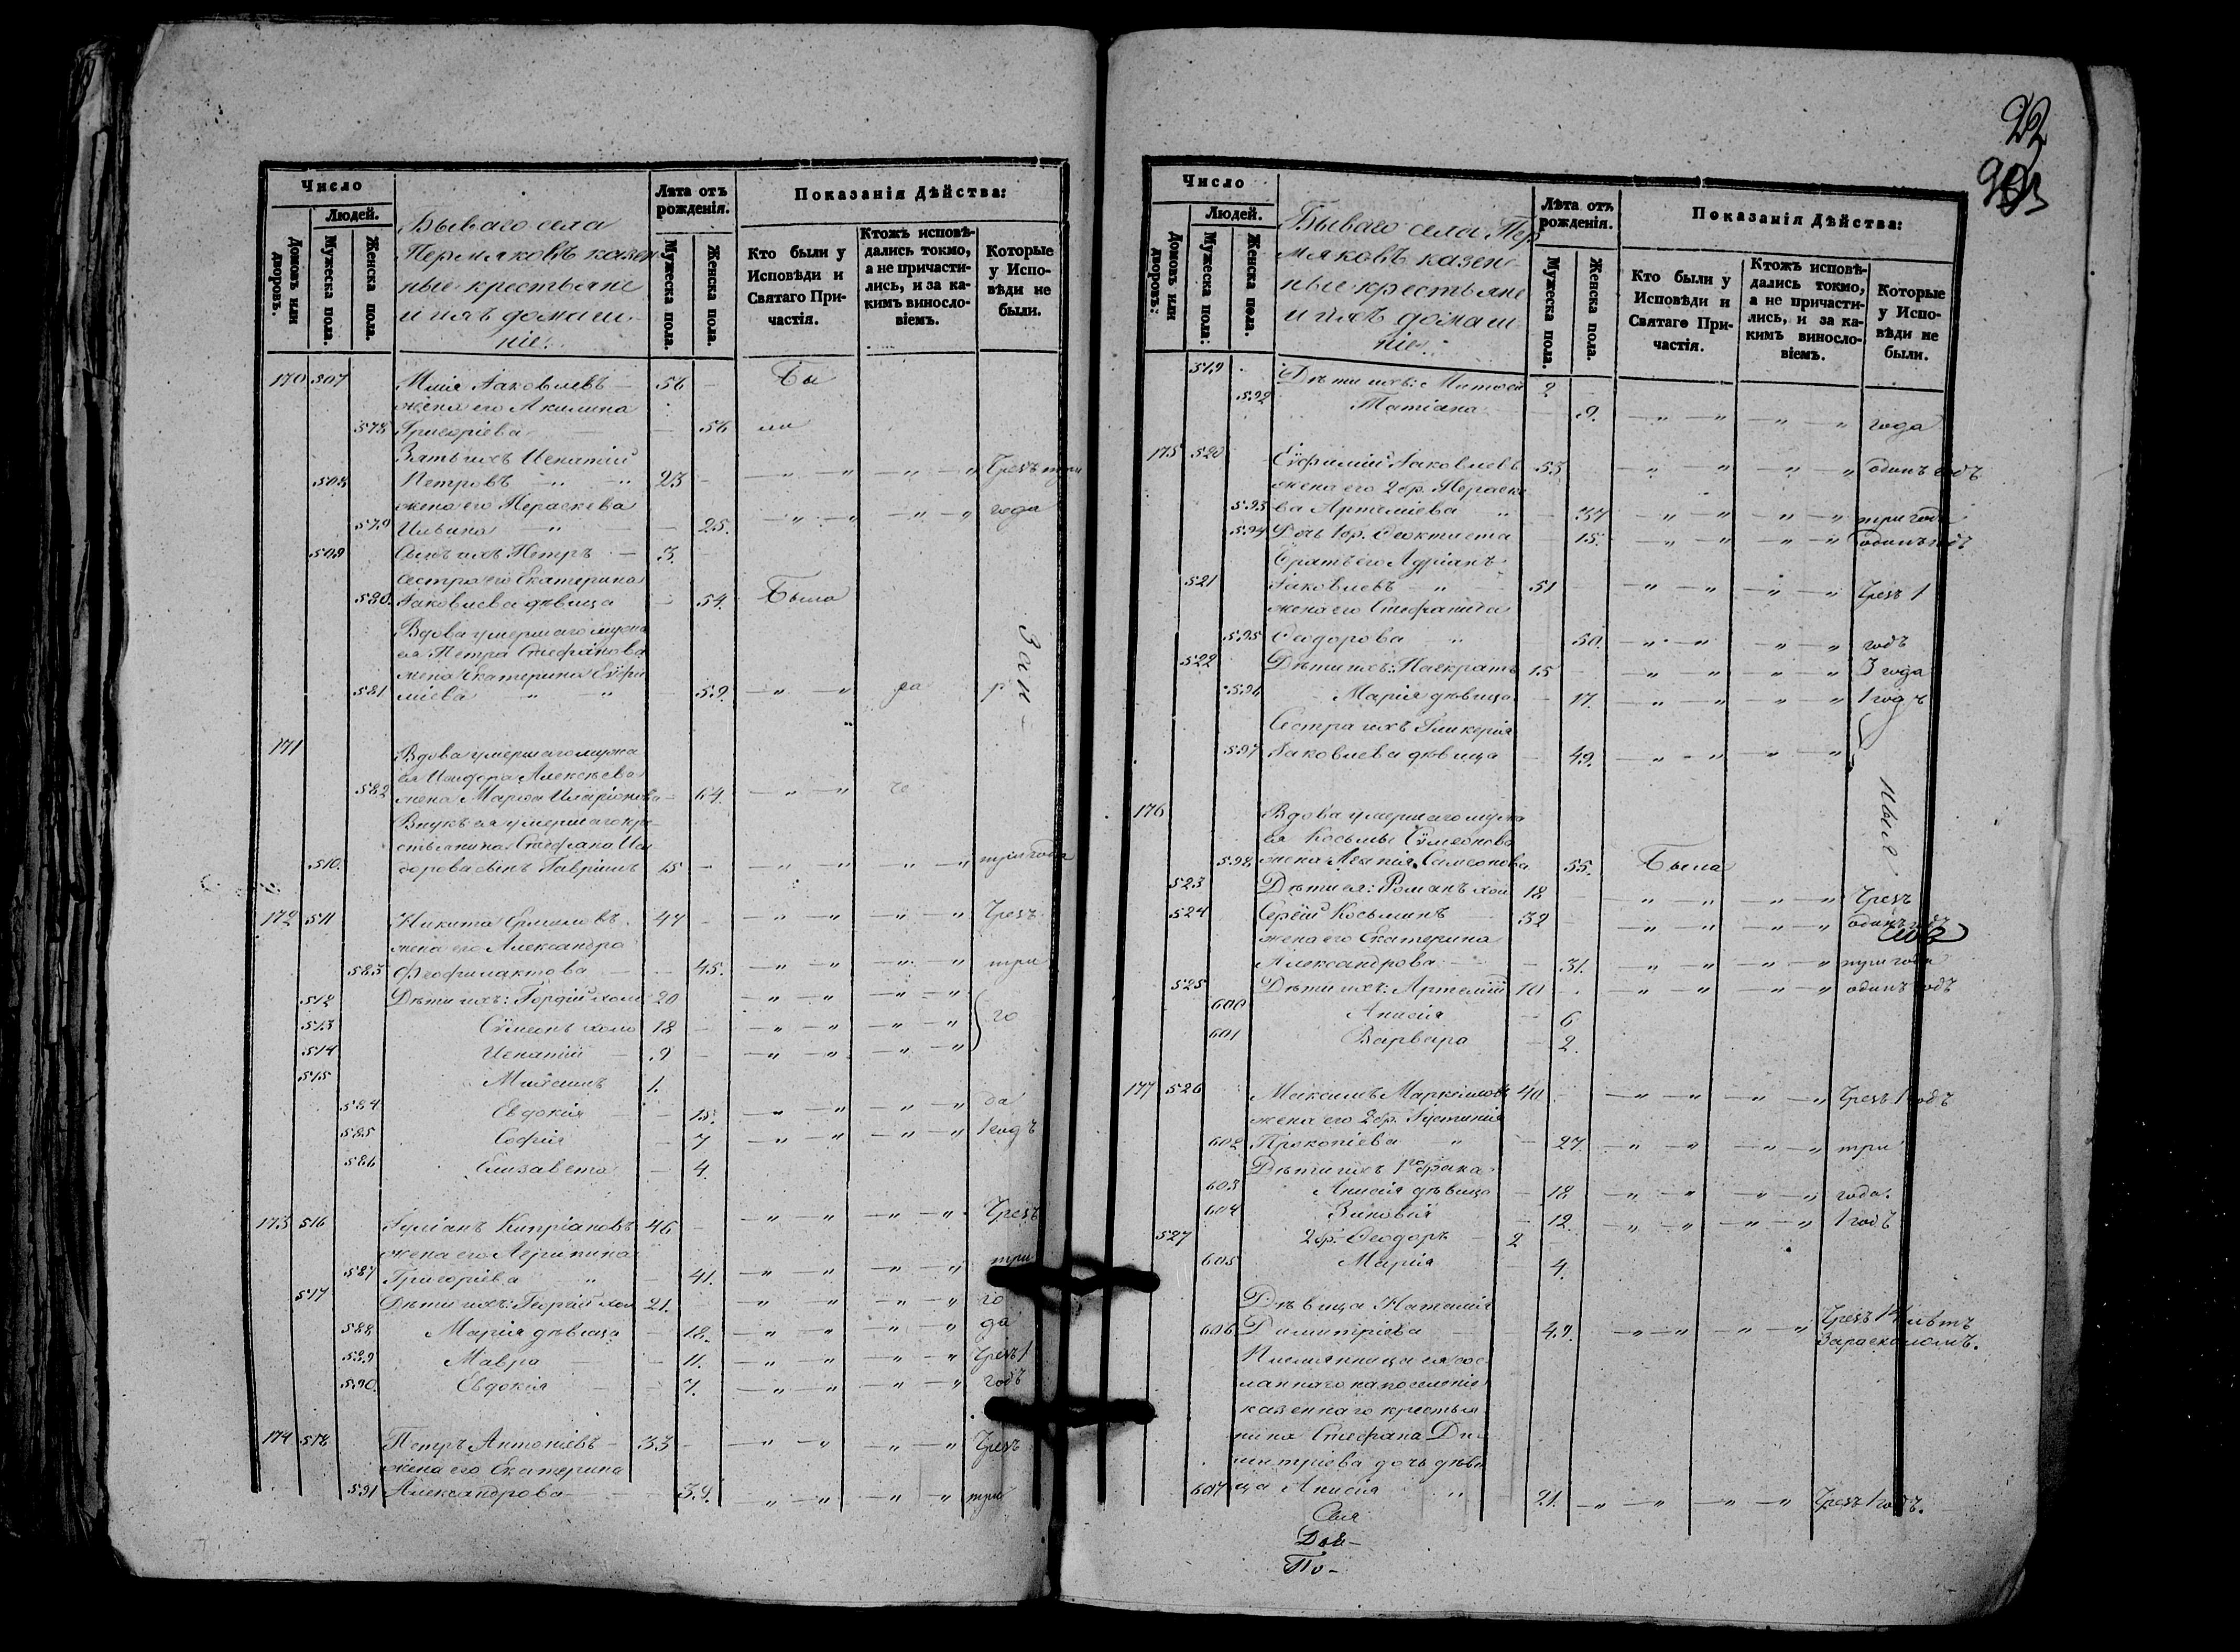 Число
Людей.
Домовъ или дворовъ.
Мужеска пола.
Женска пола.
Бываго села
Пермяковъ казен-
ные крестьяне
и ихъ домаш-
ніе:
Лѣта отъ рожденія.
Мужеска пола.
Женска пола.
Показанія Дѣйства:
Кто были у Исповѣди и Святаго Причастія.
Ктожъ исповѣ-
дались токмо,
а не причасти-
лись, и за ка-
кимъ винослo-
віемъ.
Которые
у Испо-
вѣди не
были.
170 507 Илія Іаковлевъ — 56 — Бы
жена его Акилина
578 Григоріева — — 56 ли
Зять ихъ Игнатій
508 Петровъ — 23 — Чрезъ три
жена его Параскева
579 Ильина — 25. года
509 Сынъ ихъ Петръ — 3.
Сестра его Екатерина
580. Іаковлева дѣвица — 54. Была
Вдова умершаго мужа
ея Петра Стефанова
жена Екатерина Евфи
581 міева — 59. ра р
Зап-
171 Вдова умершаго мужа
ея Исидора Алексѣева
582 жена Марѳа Иларіонова — 64. че
Внукъ ея умершаго кре-
стьянина Стефана Иси
510. дорова сынъ Гавріилъ 15 — три года
172 511 Никита Ермиловъ. 47 — Чрезъ
жена его Александра
583 Феофилактова — 45. три
512 Дѣти ихъ: Гордій холо 20
513 Сумеонъ холо 18 — го
514 Игнатій — 9
515 Михаилъ 1.
584 Евдокія — 15. да
585 София — 7 1 годъ
586 Елизавета — 4.
173 516 Іуліанъ Кипріановъ 46 — Чрезъ
жена его Агрипина
587 Григоріева — 41. три
517 Дѣти ихъ: Георгій хол 21. го
588 Марія дѣвица — 18. да
589 Мавра — 11. Чрезъ 1
590. Евдокія — 7. годъ
174 518 Петръ Антоніевъ — 33 — Чрезъ
жена его Екатерина
591 Александрова — 39. три
22
Число
Людей.
Домовъ или дворовъ:
Мужеска пола:
Женска пола.
Бываго села Пер
мяковъ казен-
ные крестьяне
и ихъ домаш
ніе:
Лѣта отъ рожденія.
Мужеска пола.
Женска пола.
Показанія Дѣйства:
Кто были у Исповѣди и Святаго Причастія.
Ктожъ исповѣ-
дались токмо,
а не причасти-
лись, и за ка-
кимъ винослo-
віемъ.
Которые
у Испо-
вѣди не
были.
519 Дѣти ихъ: 2
592 Татіана — 9. года
175 520 Евфимій Іаковлевъ 53 одинъ годъ
жена его 2 бр. Параске
593 ва Артеміева — 37 три года
594 Дочь 1 бр. Ѳеоктиста — 15. одинъ годъ
Братъ его Адріанъ
521 Іаковлевъ — 51 Чрезъ 1
жена его Стефанида
595 Сидорова — 50. годъ
522 Дѣти ихъ: Панкратъ 15 3 года
596 Марія дѣвица — 17. 1 годъ
Сестра ихъ Гликерія
597 Іаковлева дѣвица — 49.
ные
176 Вдова умершаго мужа
ея Косьмы Сумеонова
598 жена Самсонова 55. Была
523 Дѣти ея: Романъ хол 18 Чрезъ
524 Сергій Косьминъ 32 одинъ годъ
жена его Екатерина
Александрова — 31. три года
525 Дѣти ихъ: Артемій 10 одинъ годъ
600 Анисія — 6
601 Варвара — 2.
177 526 Максимъ Маркелловъ 40 Чрезъ 1 годъ
жена его 2 бр. Іустинія
602 Прокопіева — 27. три
Дѣти ихъ 1го брака
603 Анисія дѣвица — 18 года.
604 Зиновія — 12. 1 годъ
527 2 бр. Ѳеодоръ — 2
605 Марія — 4.
Дѣвица Наталия
606 Димитріева — 49. Чрезъ 14 лѣтъ
За расколомъ.
Племянница ея сос-
ланнаго на поселеніе
казеннаго крестья
нина Стефана Ди-
митріева дочь дѣви
607 ца Анисія 21. Чрезъ 1 годъ.
Свя
Дія-
По-